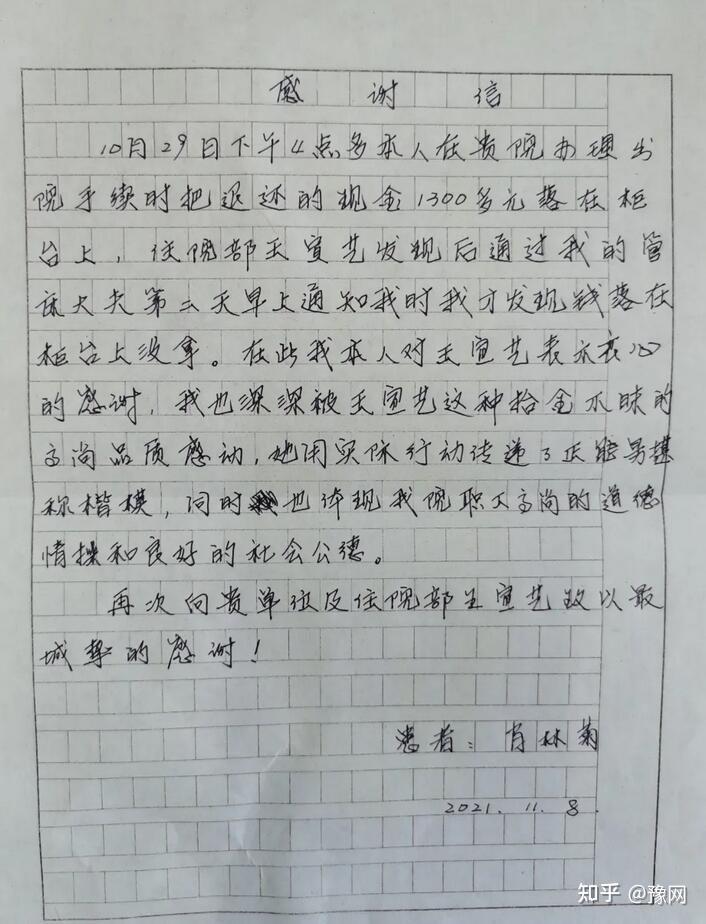 感谢信
10月29日下午4点多本人在贵院办理出
院手续时把退还的现金1300多元落在柜
台上，住院部王宣艺发现后通过我的管
床大夫第二天早上通知我时我才发现钱落在
柜台上没拿。在此我本人对王宣艺表示衷心
的感谢，我也深深被王宣艺这种拾金不昧的
高尚品质感动，她用实际行动传递了正能量堪
称楷模，同时也体现我院职工高尚的道德
情操和良好的社会公德。
再次向贵单位及住院部王宣艺致以最
城挚的感谢！
患者：肖林菊
2021.11.8.
知乎 @豫网